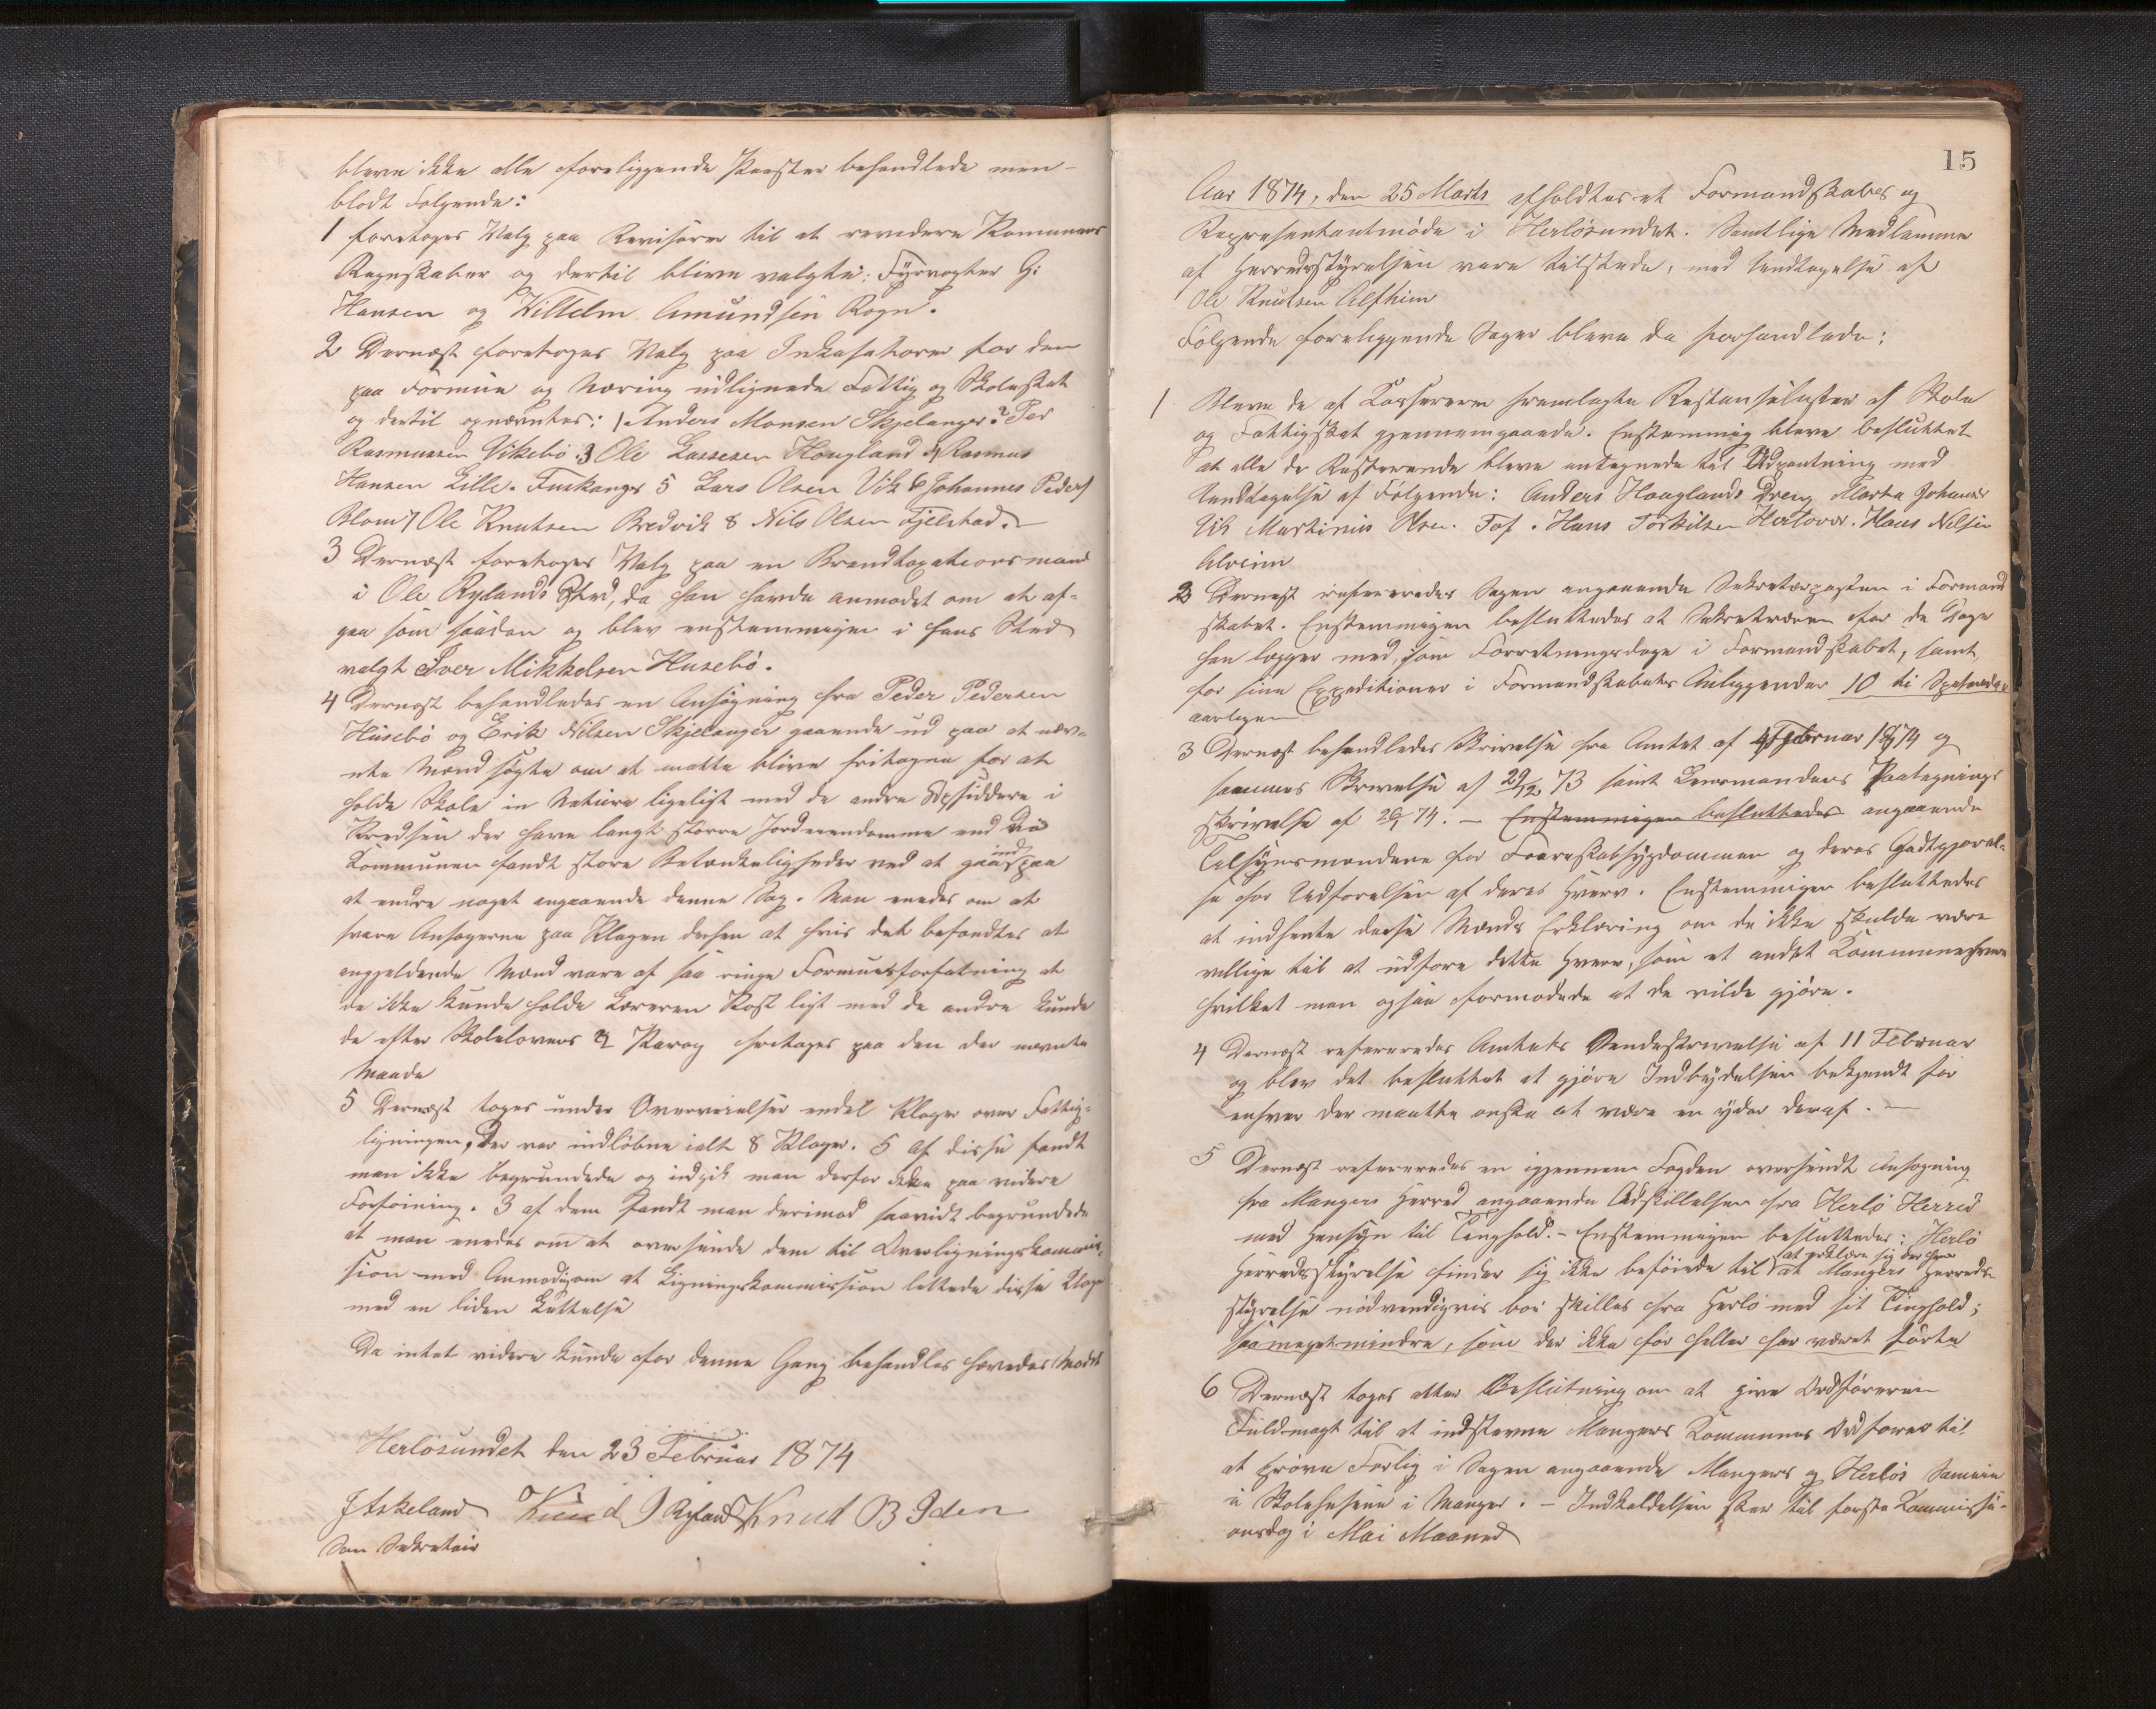 bleve ikke alle foreliggende Poster behandlede men
blodt Følgende:
1 foretoges Valg paa Revisorer til at revidere Komunens
Regnskaber og dertil bleve valgte: Fyrvogter G:
Hansen og Willelm Amundsen Rogn.
2 Dernæst foretoges Valg paa Inkasatorer for den
paa Formue og Næring udlignede Fattig og Skoleskat
og dertil opnævntes: 1 Anders Monsen Skjelanger 2 Per
Rasmussen Vikebö 3 Ole Lassesen Hougland 4 Rasmus
Hansen Lille-Fuskanger 5 Lars Olsen Vik 6 Johannes Peders
Blom 7 Ole Knutsen Bredvik 8 Nils Olsen Fjelstad. –
3 Dernæst foretoges Valg paa en Brandtaxationsmand
i Ole Rylands Sted, da han havde anmodet om at af-
gaa som saadan og blev enstemmigen i hans Sted
valgt Iver Mikkelsen Husebö.
4 Dernæst behandledes en Ansøgning fra Peder Pedersen
Husebö og Erik Nilsen Skjelanger gaaende ud paa at næv-
nte Mænd søgte om at maatte blive fritagen for at
holde Skole in Natura ligeligt med de andre Opsiddere i
Kredsen der have langt større Jordeiendomme end de
Kommunen fandt store Betænkeligheder ved at gaa ind paa
at endre noget angaaende denne Sag. Man enedes om at
svare Ansøgerne paa Klagen derhen at hvis det befandtes at
angjeldende Mænd vare af saa ringe Formuesforfatning at
de ikke kunde holde Læreren Kost ligt med de andre kunde
de efter Skolelovens Parag fritages paa den der nævnte
Maade
5 Dernæst toges under Overveielse endel Klager over Fattig-
ligningen, Der var indløbne ialt 8 Klager. 5 af disse fandt
man ikke begrundede og indgik man derfor ikke paa videre
Forføining. 3 af dem fandt man derimod saavidt begrundede
at man enedes om at oversende dem til Overligningskommis-
sion med Anmodigom at Ligningskommission lettede disse Klager
med en liden Lettelse
Da intet videre kunde for denne Gang behandles hævedes Mødet
Herlösundet den 23 Februar 1874
J Askeland Knud J Ryland Knud B Iden
Som Sekretair
15
Aar 1874, den 25 Marts afholdtes et Formandskabs og
Representantmöde i Herlösundet. Samtlige Medlemmer
af Herredsstyrelsen vare tilstede, med Undtagelse af
Ole Knutsen Alfheim
Følgende foreliggende Sager bleve da forhandlede:
1 Bleve de af Kassereren fremlagte Restanselister af Skole
og Fattigskat gjennemgaaede. Enstemmig bleve besluttet
at alle de Resterende bleve antegnede til Udpantning med
Undtagelse af Følgende: Anders Houglands Dreng Marta Johannes
Vik Martinus Olsen. Tof. Hans Torkilsen Herlover. Hans Nilsen
Alveim
2 Dernæst refereredes Sagen angaaende Sekretærposten i Formand
skabet. Enstemmigen besluttedes at Sekretæren for de Dage
han lægger med, som Forretningsdage i Formandskabet, samt
for sine Expeditioner i Formandskabets Anliggender 10 ti Speciedaler
aarligen
3 Dernæst behandledes Skrivelse fra Amtet af Februar 1874 og
sammes Skrivelse af 29/12 73 samt Lensmandens Paategnings
skrivelse af 74. – Enstemmigen besluttedes angaaende
Tilsynsmændene for Faareskabsygdommen og deres Godtgjørel-
se for Udførelsen af deres Hverv. Enstemmigen besluttedes
at indhente disse Mænds Erklæring om de ikke skulde være
villige til at udføre dette Hverv, som et andet Kommunehverv
hvilket man ogsaa formodede at de vilde gjøre.
4 Dernæst refereredes Amtets Rendeskrivelse af 11 Februar
og blev det besluttet at gjøre Indbydelsen bekjendt for
enhver der maatte ønske at være en yder deraf. –
5 Dernæst refereredes en igjennem Fogden oversendt Ansøgning
fra Mangers Herred angaaende Adskillelsen fra Herlö Herred
med Hensyn til Tinghold. – Enstemmigen besluttedes: Herlö
Herredsstyrelse finder sig ikke beføiede til at erklære sig derhen at Mangers Herreds-
styrelse nödvendigvis bör skilles fra Herlö med sit Tinghold;
saa megetmindre, som der ikke før heller har været hörte
6 Dernæst toges atter Beslutning om at give Ordføreren
Fuldmagt til at indstevne Mangers Kommunes Ordfører til
at prøve Forlig i Sagen angaaende Mangers og Herlös Sameie
i Skolehusene i Manger. – Indkaldelsen sker til første Kommissi-
onsdag i Mai Maaned